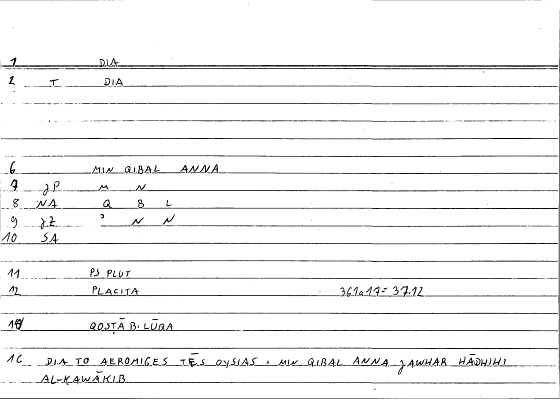 1 DIA
2 T DIA
6 MIN QIBAL ANNA
7 JP M N
8 NA Q B L
9 JZ ʾ N N
10 SA
11 PS PLUT
12 PLACITA 361a17 = 37.12
14 QOSṬĀ B. LŪQA
16 DIA TO AEROMIGES TĒS OYSIAS = MIN QIBAL ANNA JAWHAR HĀDHIHI
AL-KAWĀKIB